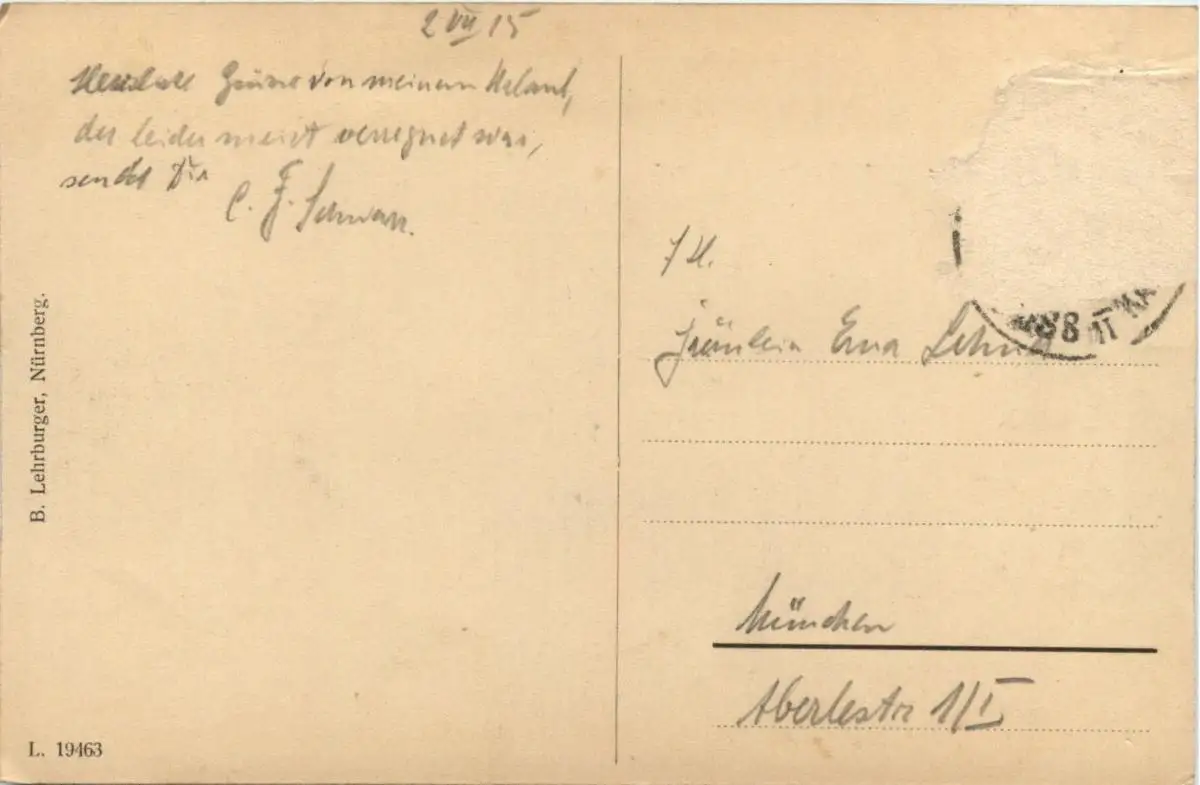 2 VII 15
Herzliche Grüsse von meinem Urlaub,
der leider meist verregnet war,
sendet Dir
C. F. Schwarz.
Fräulein Erna
München
Aberlestr 1/I
B. Lehrburger, Nürnberg.
L. 19463